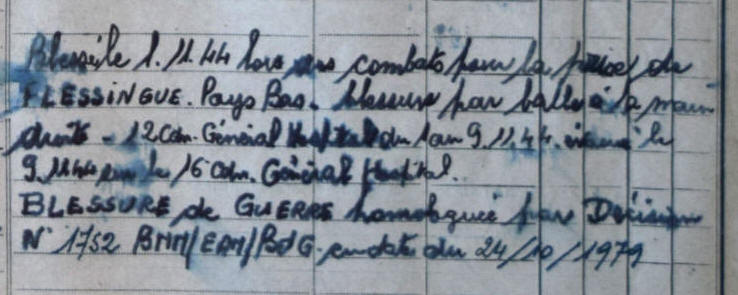 Blessé le 1.11.44 lors des combats pour la prise de
FLESSINGUE. Pays Bas. blessure par balle à la main
droite - 12 Cdn. Général Hospital du 1 au 9.11.44. évacué le
9.11.44 sur le 16 Cdn. Général Hospital.
BLESSURE de GUERRE homologuée par Décision
N° 1752 BMM/EAM/BdG. en date du 24/10/1979